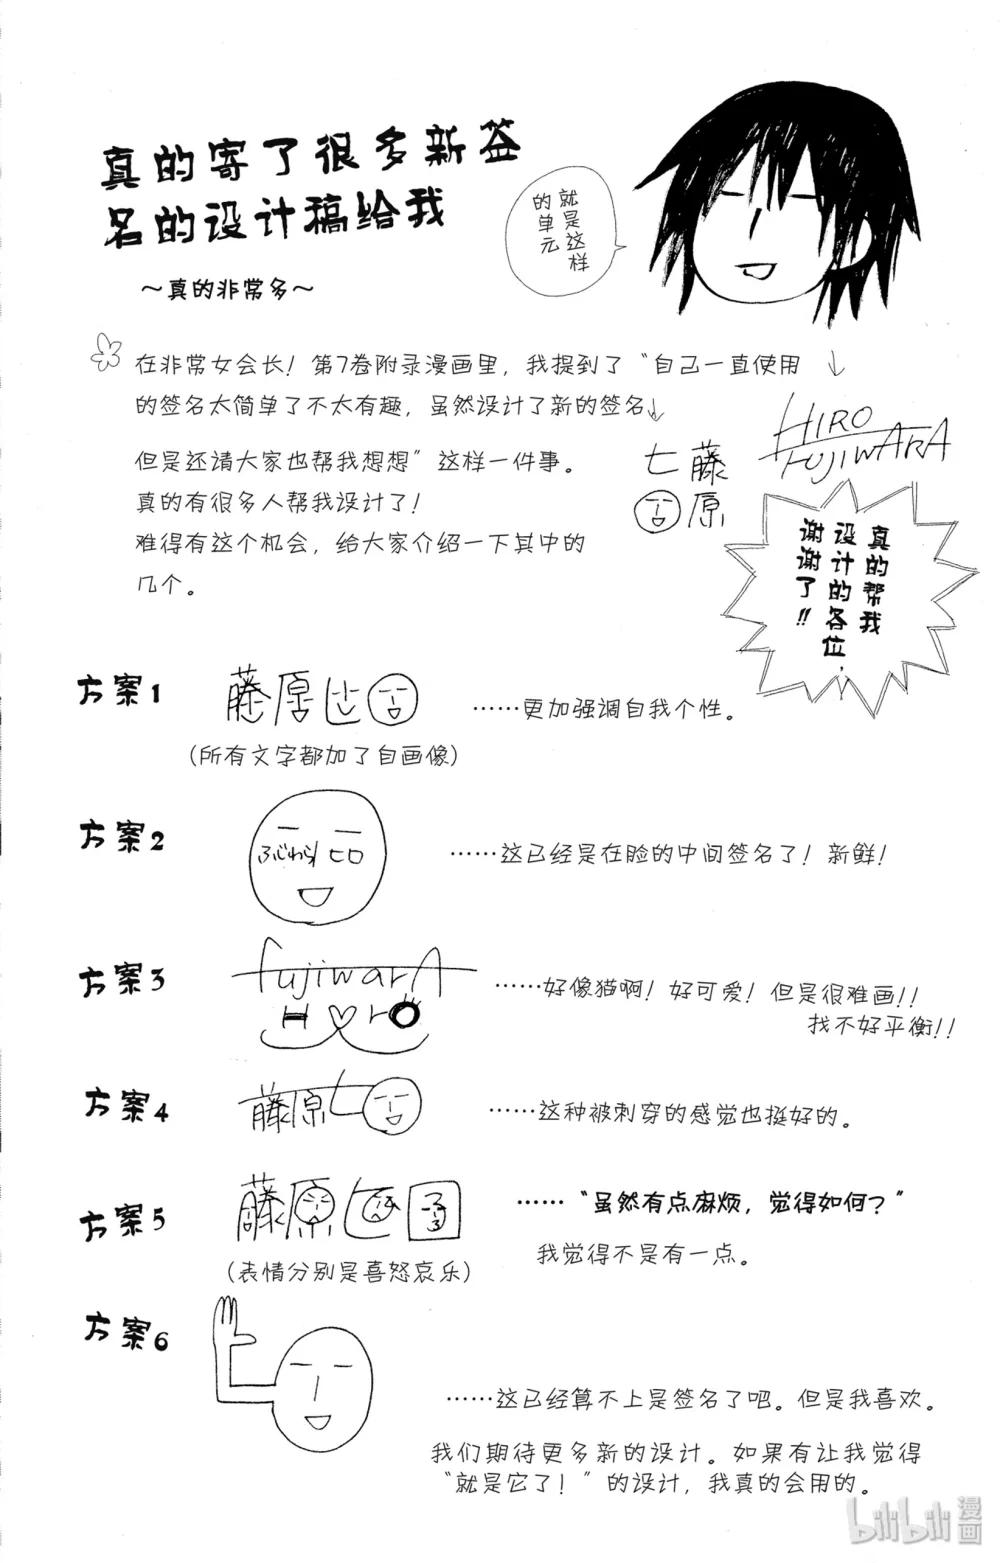 真的寄了很多新签
名的设计稿给我
～真的非常多～
就是这样
的单元
在非常女会长！第7卷附录漫画里，我提到了“自己一直使用
的签名太简单了不太有趣，虽然设计了新的签名
但是还请大家也帮我想想”这样一件事。
真的有很多人帮我设计了！
难得有这个机会，给大家介绍一下其中的
几个。
HIRO
FUJIWARA
ヒ藤
原
真的帮我
设计的各位，
谢谢了!!
方案1
藤原ヒロ
……更加强调自我个性。
（所有文字都加了自画像）
方案2
ふじわらヒロ
……这已经是在脸的中间签名了！新鲜！
方案3
fujiwarA
H♡rO
……好像猫啊！好可爱！但是很难画!!
找不好平衡!!
方案4
藤原ヒ
……这种被刺穿的感觉也挺好的。
方案5
藤原ヒロ
……“虽然有点麻烦，觉得如何？”
我觉得不是有一点。
（表情分别是喜怒哀乐）
方案6
……这已经算不上是签名了吧。但是我喜欢。
我们期待更多新的设计。如果有让我觉得
“就是它了！”的设计，我真的会用的。
bilibili漫画